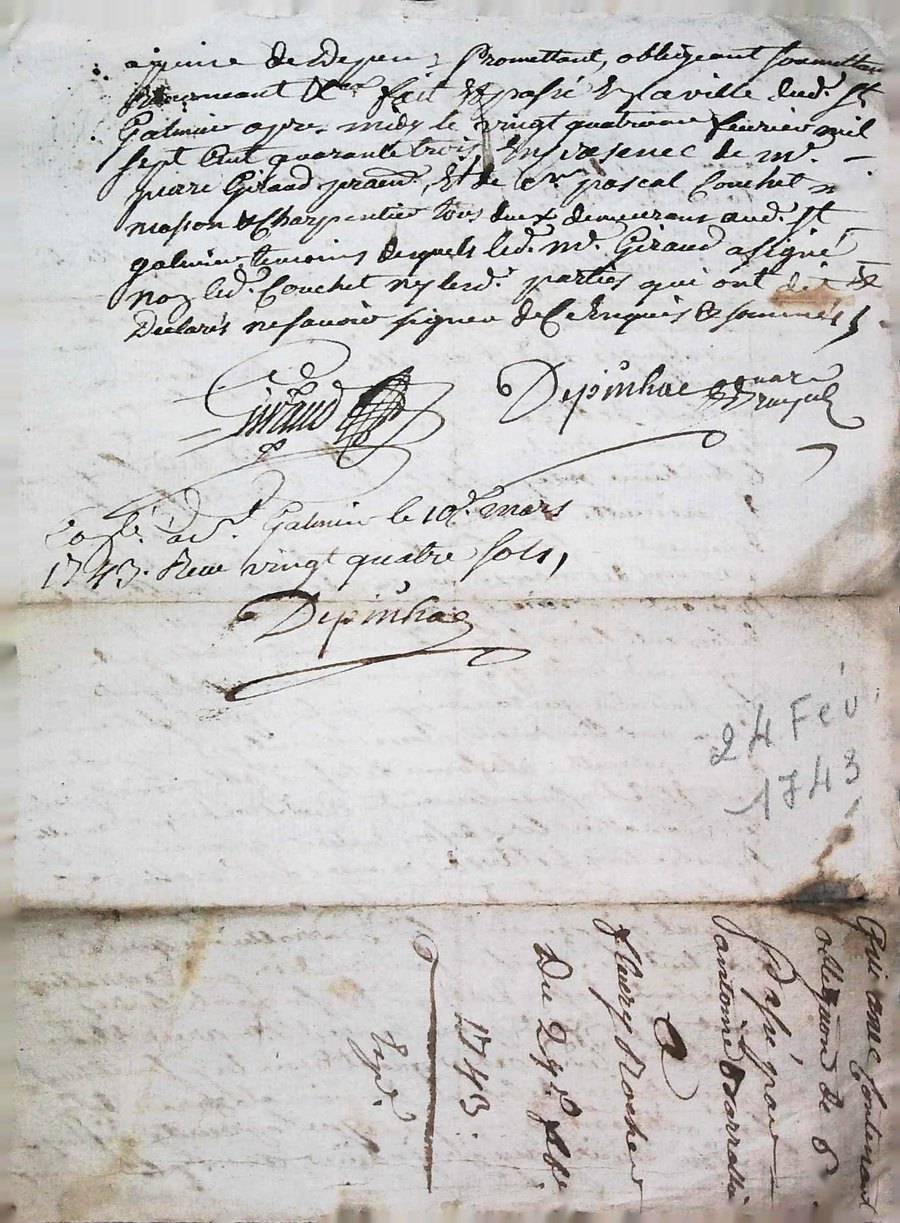 a peine de Depens, Promettant, obligeant soumettant
renonceant &c fait & passé En la ville dud. St
Galmier apres midy le vingt quatrieme fevrier mil
sept Cent quarante trois En presence de mr.
pierre Giraud & de Sr pascal Couchet
masson & Charpentier tous deux demeurans aud. St
galmier temoins desquels led. mr. Giraud a signé
non led. Couchet ny lesd. parties qui ont dit &
Declarés ne savoir signer de Ce Enquis & sommés
Giraud
Depinhac
a St. Galmier le 10e mars
1743. Receu vingt quatre sols,
Depinhac
24 Fev
1743
Quittance Contenant
obligation de
Passé par
antoine
A
fleury Rocher
Du 24e fbr
1743.
Exp.